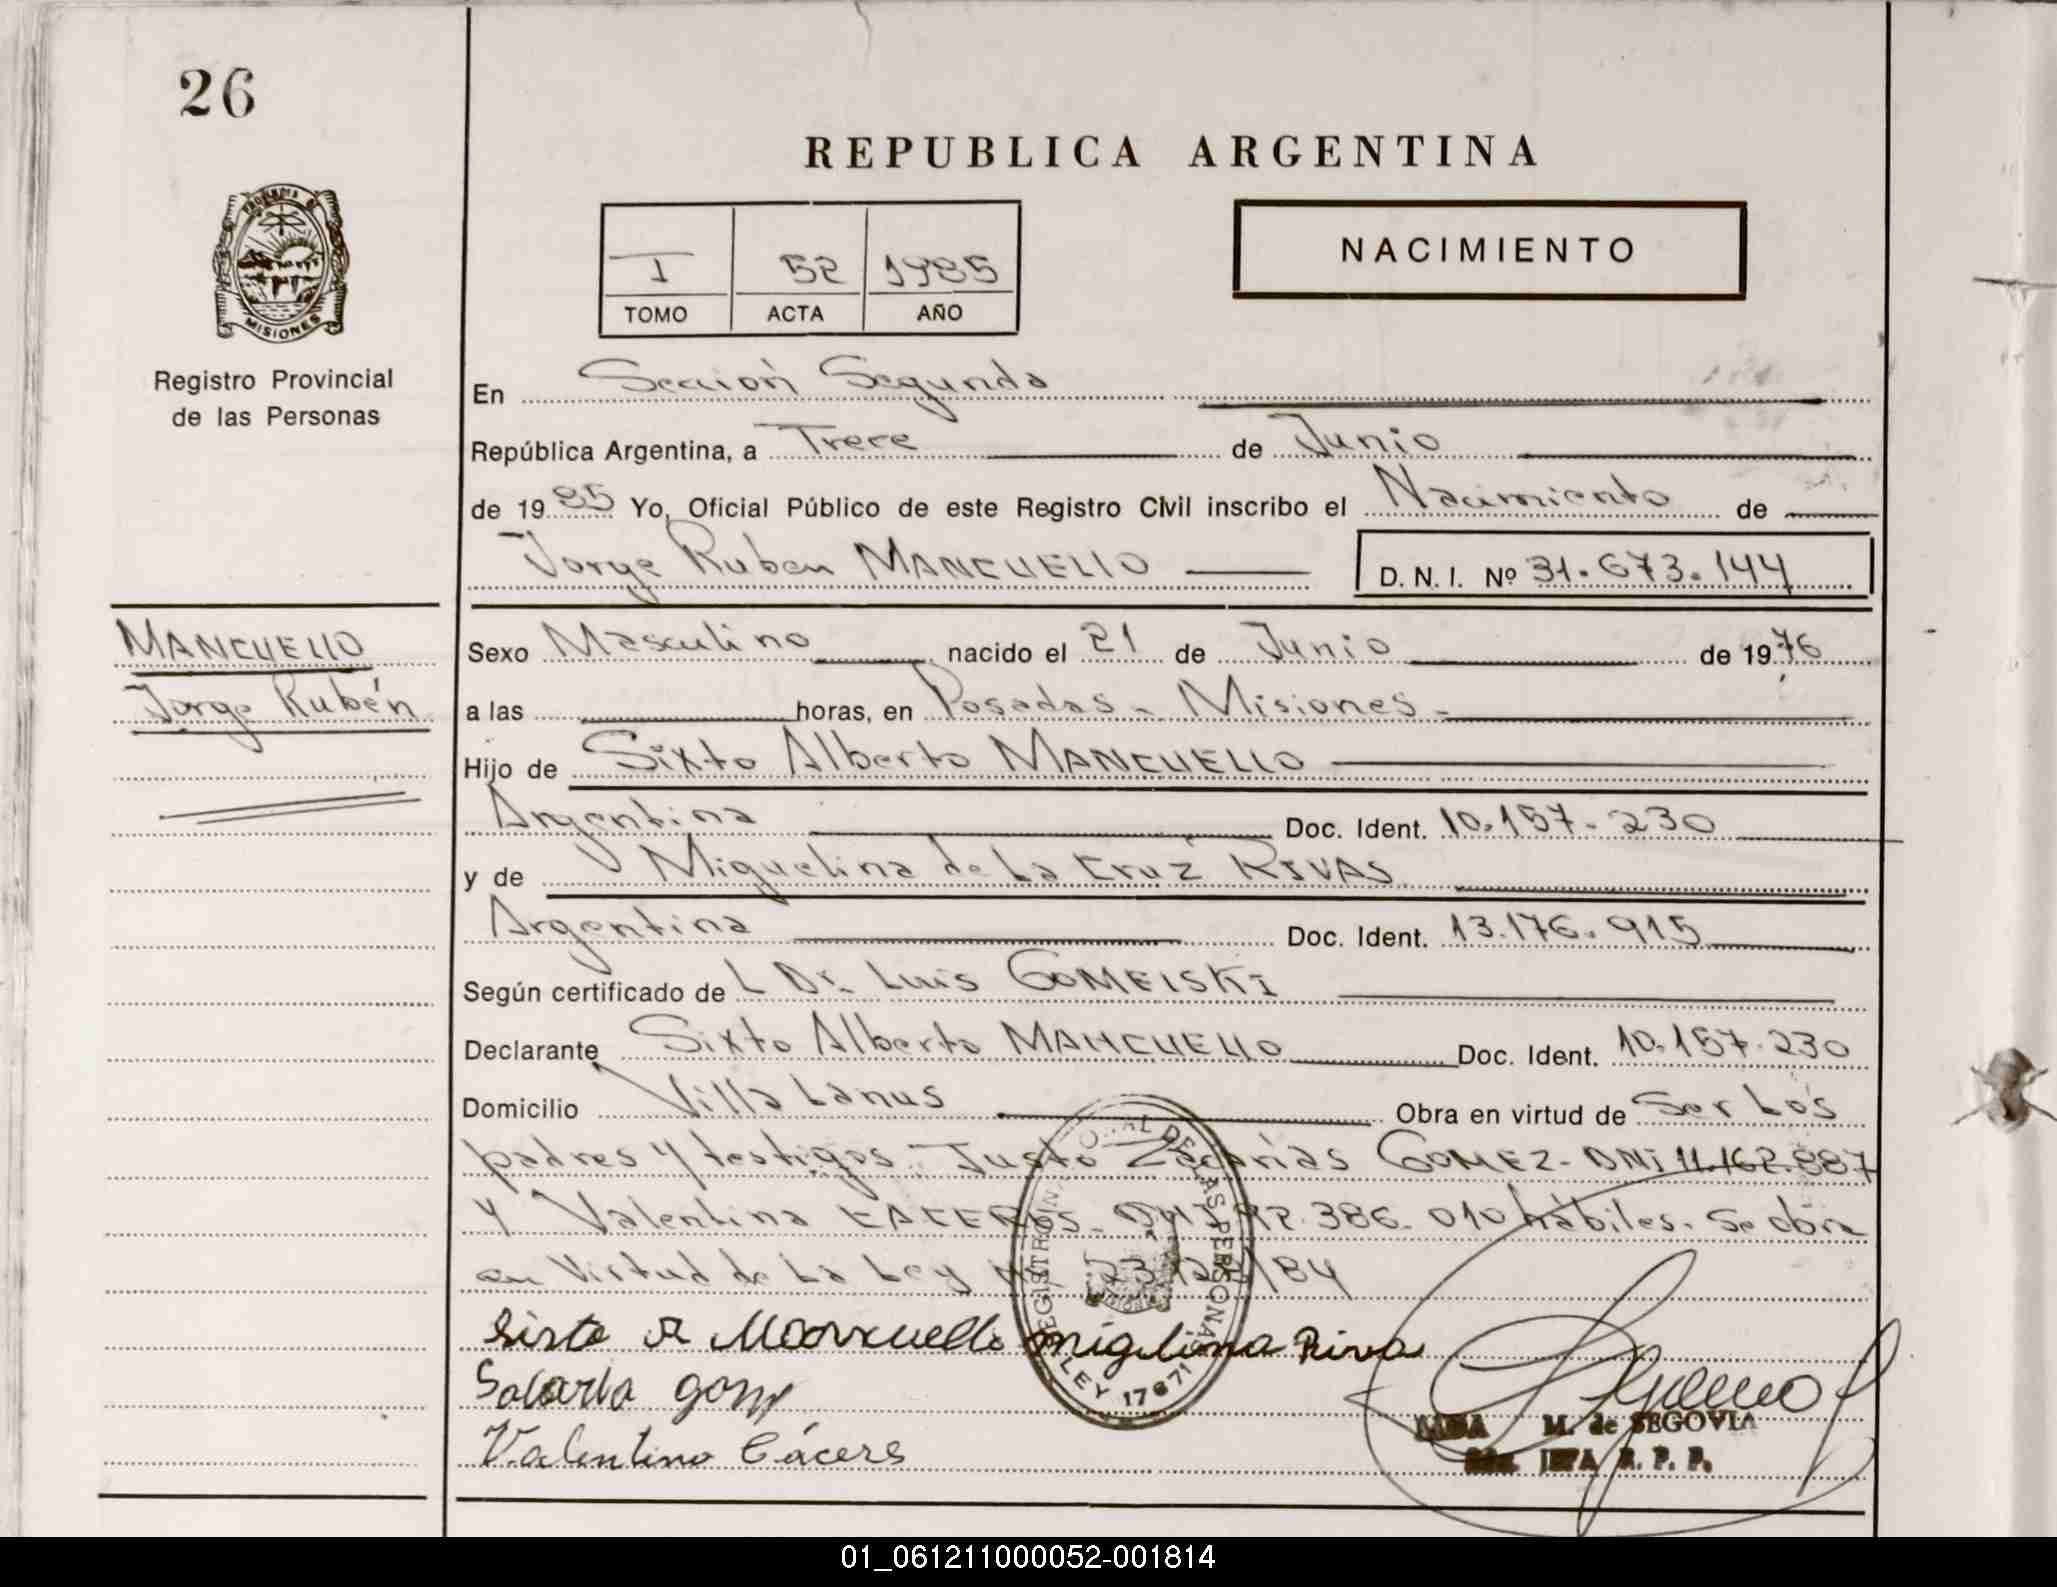 26
REPUBLICA ARGENTINA
PROVINCIA DE
MISIONES
Registro Provincial
de las Personas
I 52 1985
TOMO ACTA AÑO
NACIMIENTO
En Sección Segunda
República Argentina, a Trece de Junio
de 1985 Yo, Oficial Público de este Registro Civil inscribo el Nacimiento de
Jorge Ruben MANCUELLO D. N. I. Nº 31.673.144
MANCUELLO
Jorge Rubén
Sexo Masculino nacido el 21 de Junio de 1976
a las horas, en Posadas - Misiones -
Hijo de Sixto Alberto MANCUELLO
Argentina Doc. Ident. 10.157.230
y de Miguelina de La Cruz RIVAS
Argentina Doc. Ident. 13.176.915
Según certificado de L Dr. Luis GOMEISKI
Declarante Sixto Alberto MANCUELLO Doc. Ident. 10.157.230
Domicilio Villa Lanus Obra en virtud de Ser Los
padres y testigos Justo Zacarias GOMEZ - DNI 11.162.887
y Valentina 386.010 hábiles. Se obra
en Virtud de La Ley /84
Sisto A Mancuello Migelina Riva
Valentino Cáceres
REGISTRO NACIONAL DE LAS PERSONAS
LEY 17671
M. de SEGOVIA
JEFA R. P. P.
01_061211000052-001814